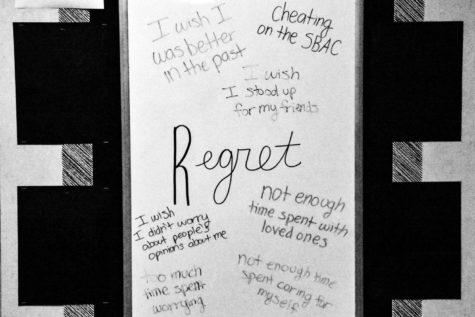 I wish I
was better
in the past
Cheating
on the SBAC
I wish
I stood up
for my friends
Regret
I wish
I didn't worry
about people's
opinions about me
not enough
time spent with
loved ones
too much
time spent
worrying
not enough time
spent caring for
myself